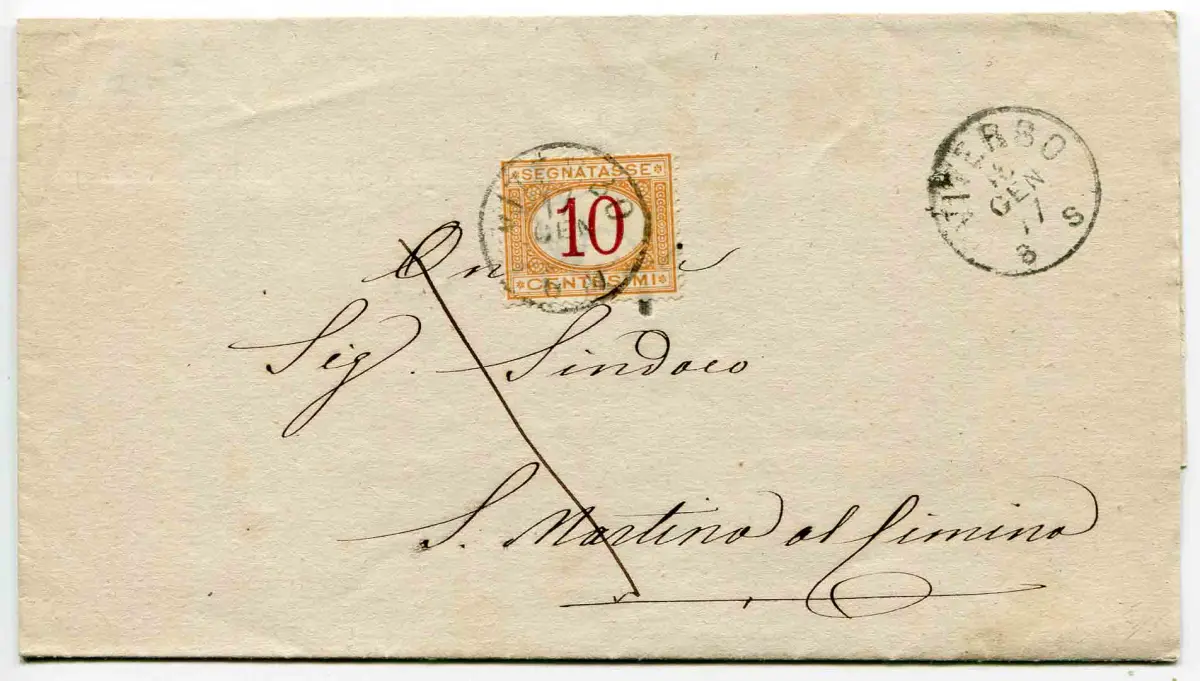 VITERBO
GEN
77
8 S
SEGNATASSE
10
CENTESIMI
GEN
Sig. Sindaco
S. Martino al Cimino